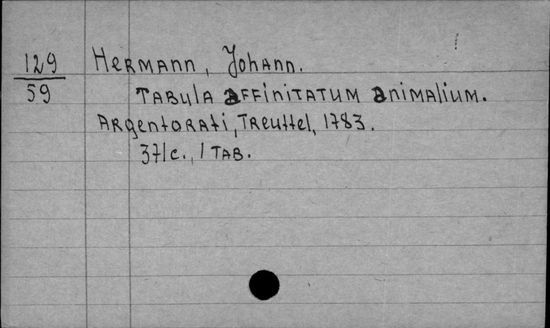 129
59
Hermann, Johann.
Tabula affinitatum animalium.
Argentorati, Treuttel, 1783.
371c., 1 tab.